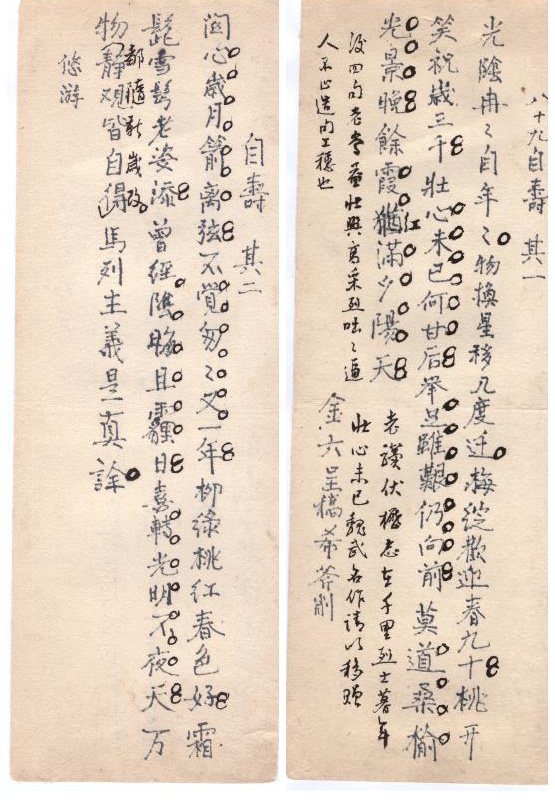 八十九自壽 其一
光陰冉々自年々物換星移几度迁梅綻歡迎春九十桃开
笑祝歲三千壯心未已何甘后举足雖艱仍向前莫道桑榆
光景晚餘霞猶滿夕陽天
红
老驥伏櫪志在千里烈士暮年
壯心未已魏武名作請以移贈
金六呈稿希斧削
後四句老當益壯興高采烈咄々逼
人不止造句工穩也
自壽 其二
関心歲月箭离弦不覺匆々又一年柳綠桃红春色好霜
髭雪鬓老姿添曾經陰晦且霾日喜轉光明不夜天万
物静观皆自得馬列主義是真詮
都隨新歲改
悠游